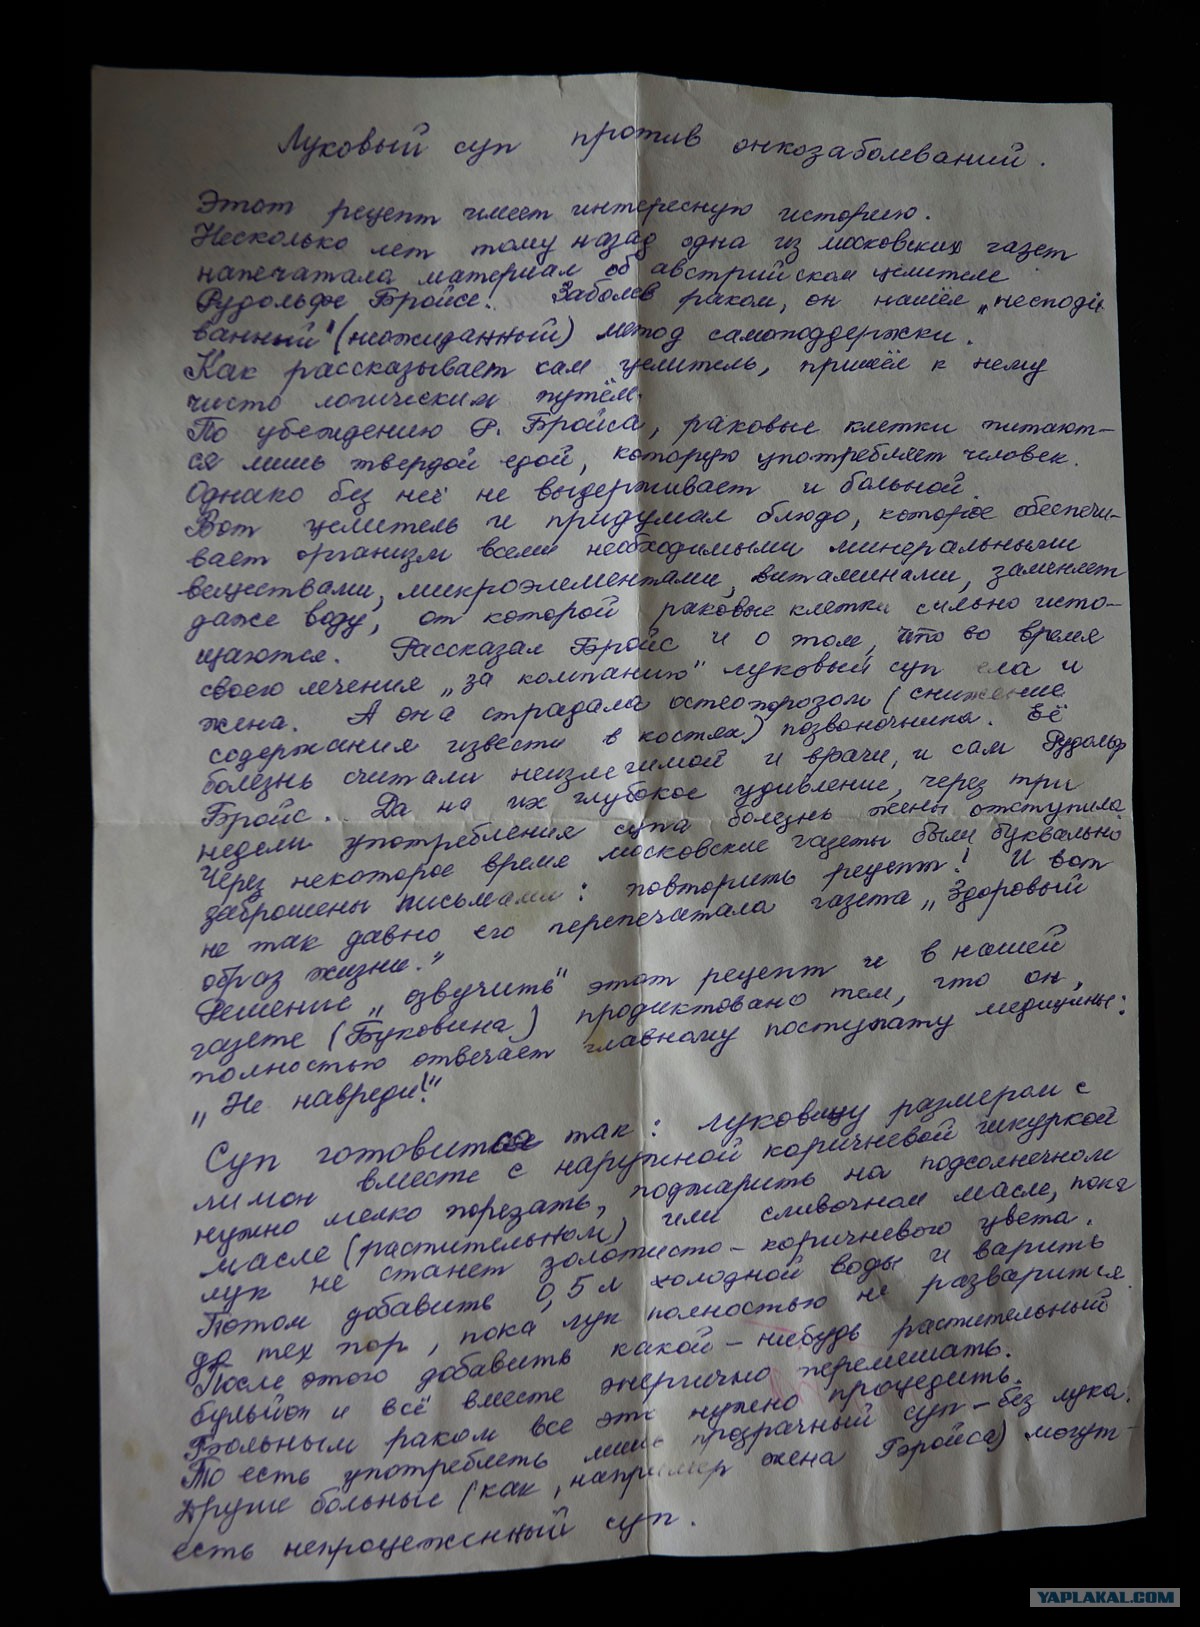 Луковый суп против онкозаболеваний.
Этот рецепт имеет интересную историю.
Несколько лет тому назад одна из московских газет
напечатала материал об австрийском целителе
Рудольфе Бройсе. Заболев раком, он нашёл „несподі-
ванный" (неожиданный) метод самоподдержки.
Как рассказывает сам целитель, пришёл к нему
чисто логическим путём.
По убеждению Р. Бройса, раковые клетки питают-
ся лишь твердой едой, которую употребляет человек.
Однако без неё не выдерживает и больной.
Вот целитель и придумал блюдо, которое обеспечи-
вает организм всеми необходимыми минеральными
веществами, микроэлементами, витаминами, заменяет
даже воду, от которой раковые клетки сильно исто-
щаются. Рассказал Бройс и о том, что во время
своего лечения „за компанию" луковый суп ела и
жена. А она страдала остеопорозом (снижение
содержания извести в костях) позвоночника. Её
болезнь считали неизлечимой и врачи, и сам Рудольф
Бройс. Да на их глубокое удивление, через три
недели употребления супа болезнь жены отступила.
Через некоторое время московские газеты были буквально
заброшены письмами: повторить рецепт! И вот
не так давно его перепечатала газета „Здоровый
образ жизни."
Решение „озвучить" этот рецепт и в нашей
газете (Буковина) продиктовано тем, что он,
полностью отвечает главному постулату медицины:
„Не навреди!"
Суп готовится так: луковицу размером с
лимон вместе с наружной коричневой шкуркой
нужно мелко порезать, поджарить на подсолнечном
масле (растительном) или сливочном масле, пока
лук не станет золотисто-коричневого цвета.
Потом добавить 0,5 л холодной воды и варить
до тех пор, пока лук полностью не разварится.
После этого добавить какой-нибудь растительный
бульйон и всё вместе энергично перемешать.
Больным раком все это нужно процедить.
То есть употреблять лишь прозрачный суп-без лука.
Другие больные (как, например жена Бройса) могут
есть непроцеженный суп.
YAPLAKAL.COM